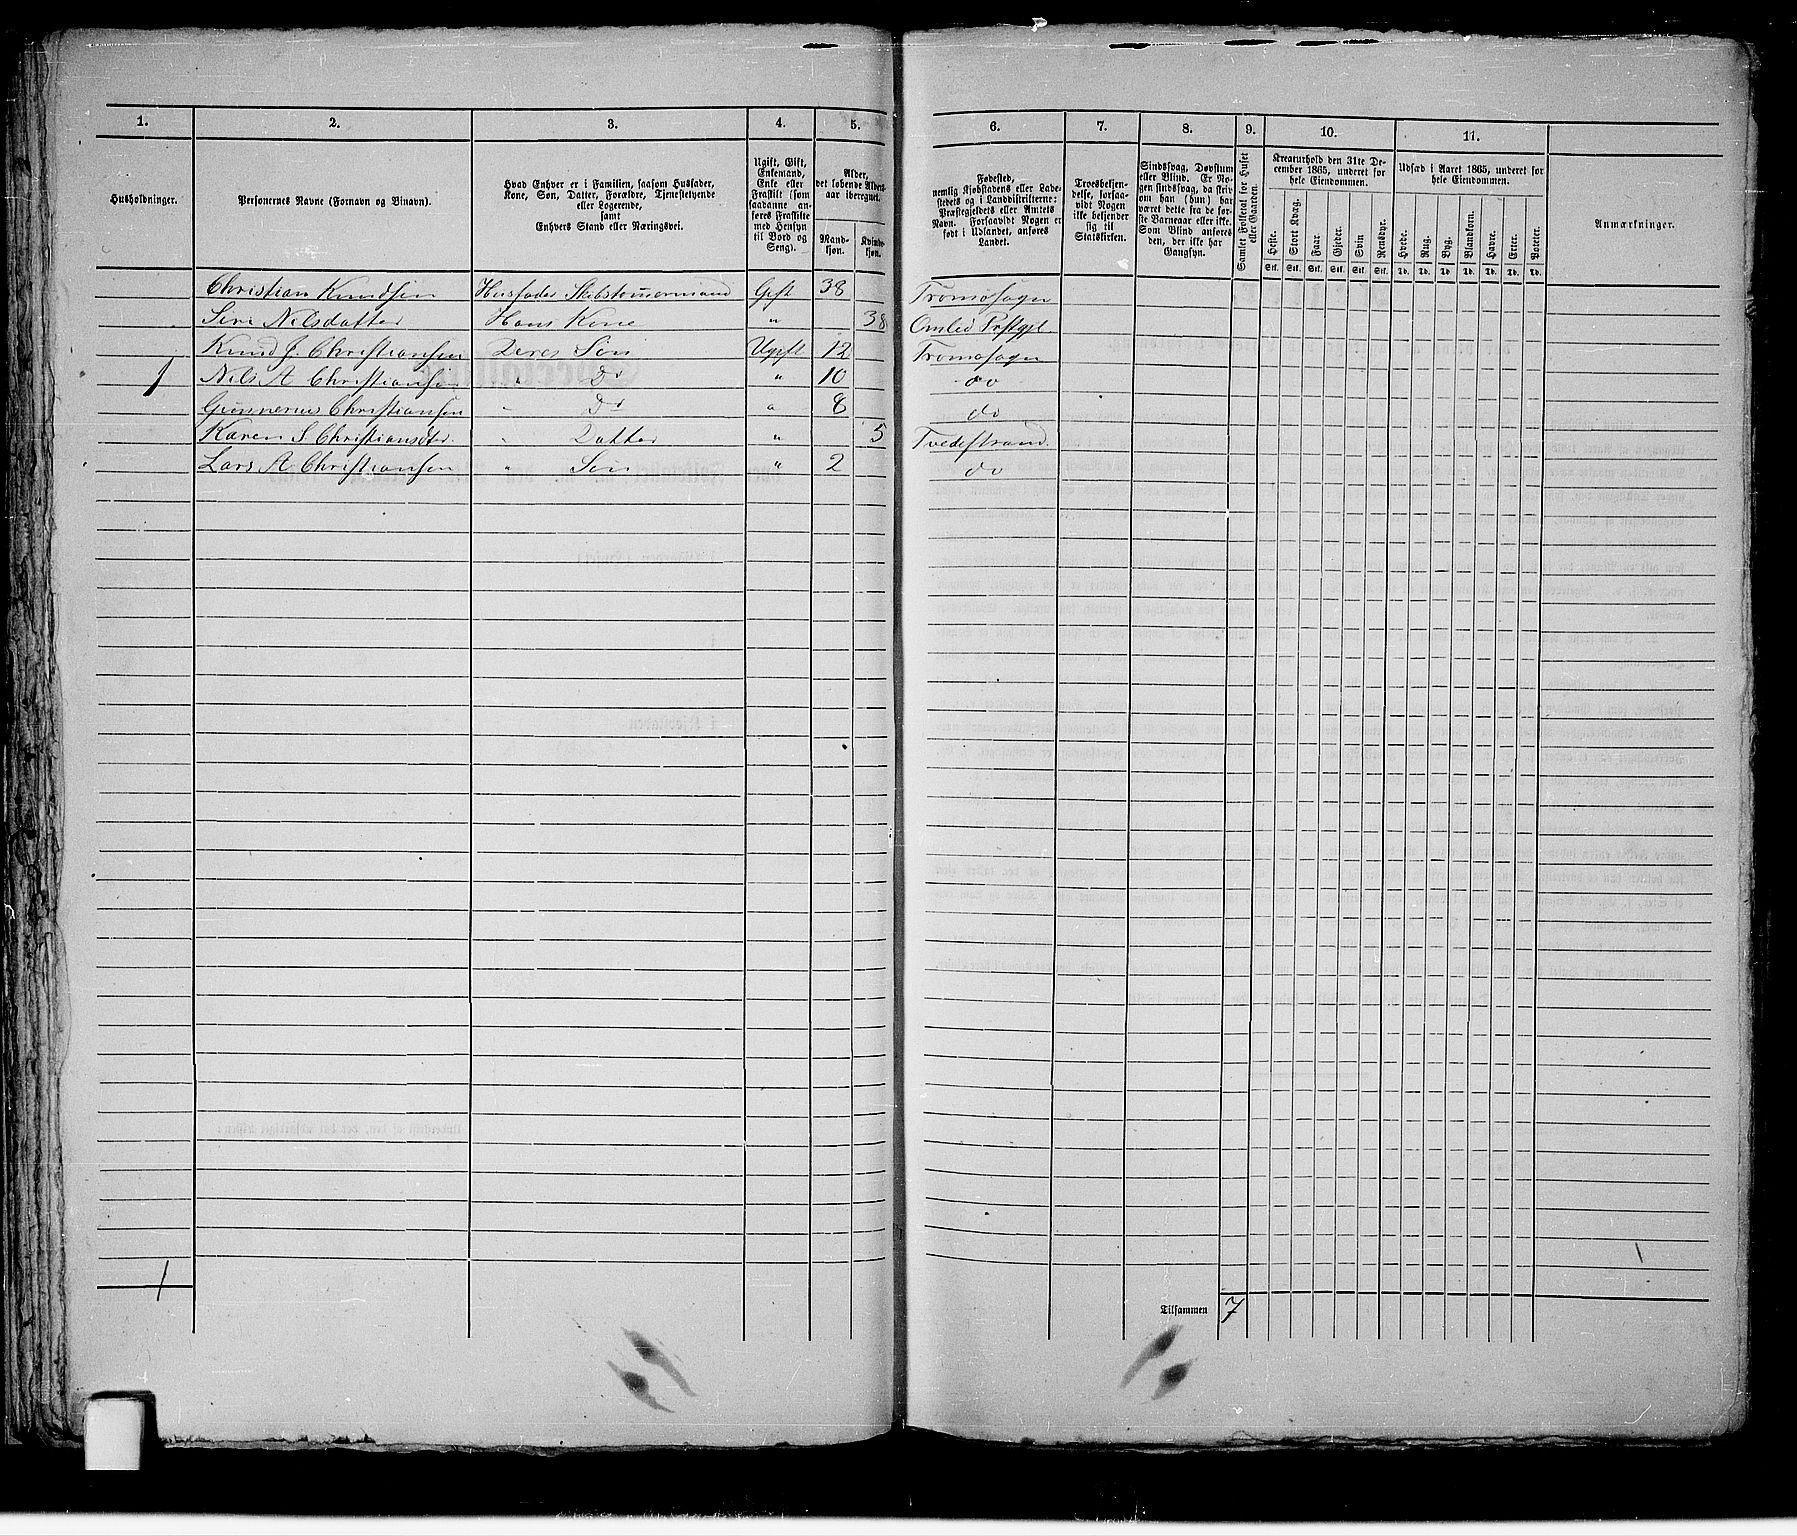 1.
2.
3.
4.
5.
6.
7.
8.
9.
10.
11.
Husholdninger.
Personernes Navne (Fornavn og Binavn).
Hvad Enhver er i Familien, saasom Husfader,
Kone, Søn, Datter, Forældre, Tjenestetyende
eller Logerende,
samt
Enhvers Stand eller Næringsvei.
Ugift, Gift,
Enkemand,
Enke eller
Fraskilt (som
saadanne an-
føres Fraskilte
med Hensyn
til Bord og
Seng).
Alder,
det løbende Alders-
aar iberegnet.
Mand-
kjøn.
Kvinde-
kjøn.
Fødested,
nemlig Kjøbstadens eller Lade-
stedets og i Landdistrikterne:
Præstegjeldets eller Amtets
Navn. Forsaavidt Nogen er
født i Udlandet, anføres
Landet.
Troesbekjen-
delse, forsaa-
vidt Nogen
ikke bekjender
sig til
Statskirken.
Sindssvag, Døvstum
eller Blind. Er No-
gen sindssvag, da skriv
om han (hun) har
været dette fra de før-
ste Barneaar eller ikke.
Som Blind anføres
den, der ikke har
Gangsyn.
Samlet Folketal for Huset
eller Gaarden.
Kreaturhold den 31te De-
cember 1865, underet for
hele Eiendommen.
Heste. Stort Kvæg. Faar. Gjeder. Svin. Rensdyr.
Stk. Stk. Stk. Stk. Stk. Stk.
Udsæd i Aaret 1865, underet for
hele Eiendommen.
Hvede. Rug. Byg. Blandkorn. Havre. Erter. Poteter.
Td. Td. Td. Td. Td. Td. Td.
Anmærkninger.
Christian Knudsen Husfader Skibstømermand Gift 38 Tromøsogn
Siri Nilsdatter Hans Kone " 38 Omlid Prstgjl.
Knud J. Christiansen Deres Søn Ugift 12 Tromøsogn
1 Nils A Christiansen " Do " 10 do
Gunnerius Christiansen " Do " 8 do
Karen S Christiansdtr " Datter " 5 Tvedestrand
Lars A Christiansen " Søn " 2 do
1
Tilsammen 7